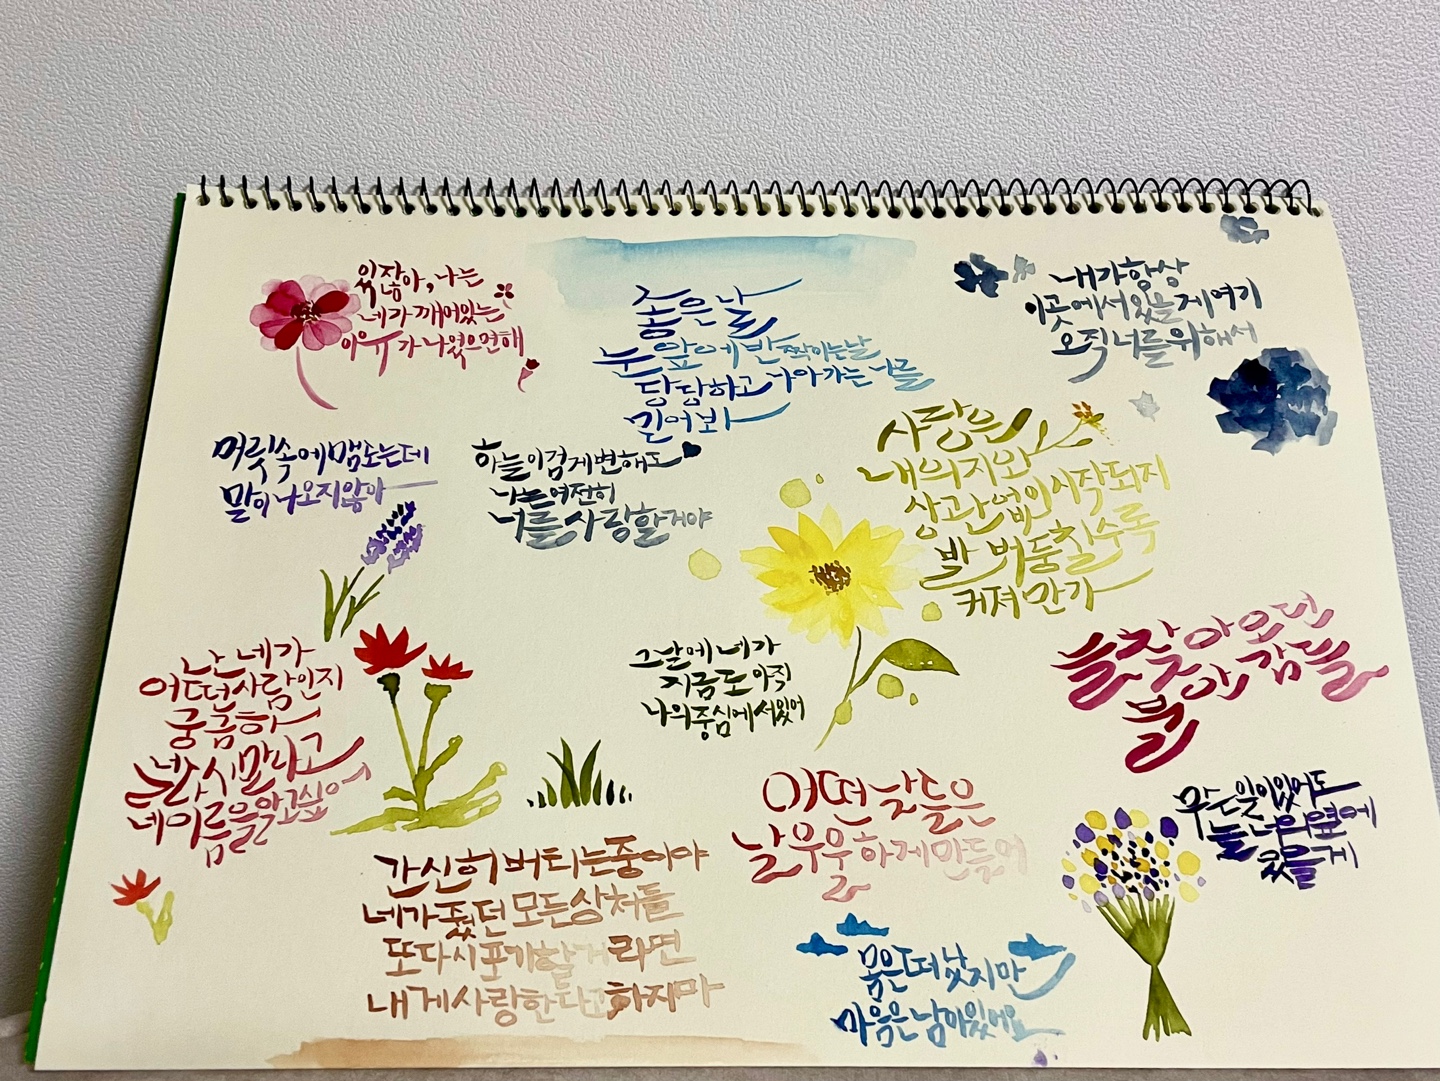 있잖아, 나는
네가 깨어있는
이유가 나였으면해
좋은 날
눈 앞에 반짝이는날
당당하고 나아가는 너를
믿어봐
내가 항상
이곳에서 있을게 여기
오직 너를 위해서
머릿속에 맴도는데
말이 나오지않아
하늘이 검게 변해도
나는 여전히
너를 사랑할거야
사랑은
내 의지와
상관없이 시작되지
발버둥칠수록
커져만가
난 네가
어떤사람인지
궁금하
시 말하고
네이름을 알고싶어
그날에 네가
지금도 아직
나의 중심에 서있어
늘 찾아오던
불안감들
어떤 날들은
날 우울하게 만들어
무슨일이있어도
늘 너의 옆에
있을게
간신히 버티는중이야
네가 줬던 모든상처들
또다시 포기할거라면
내게 사랑한다고하지마
몸은 떠났지만
마음은 남아있어요